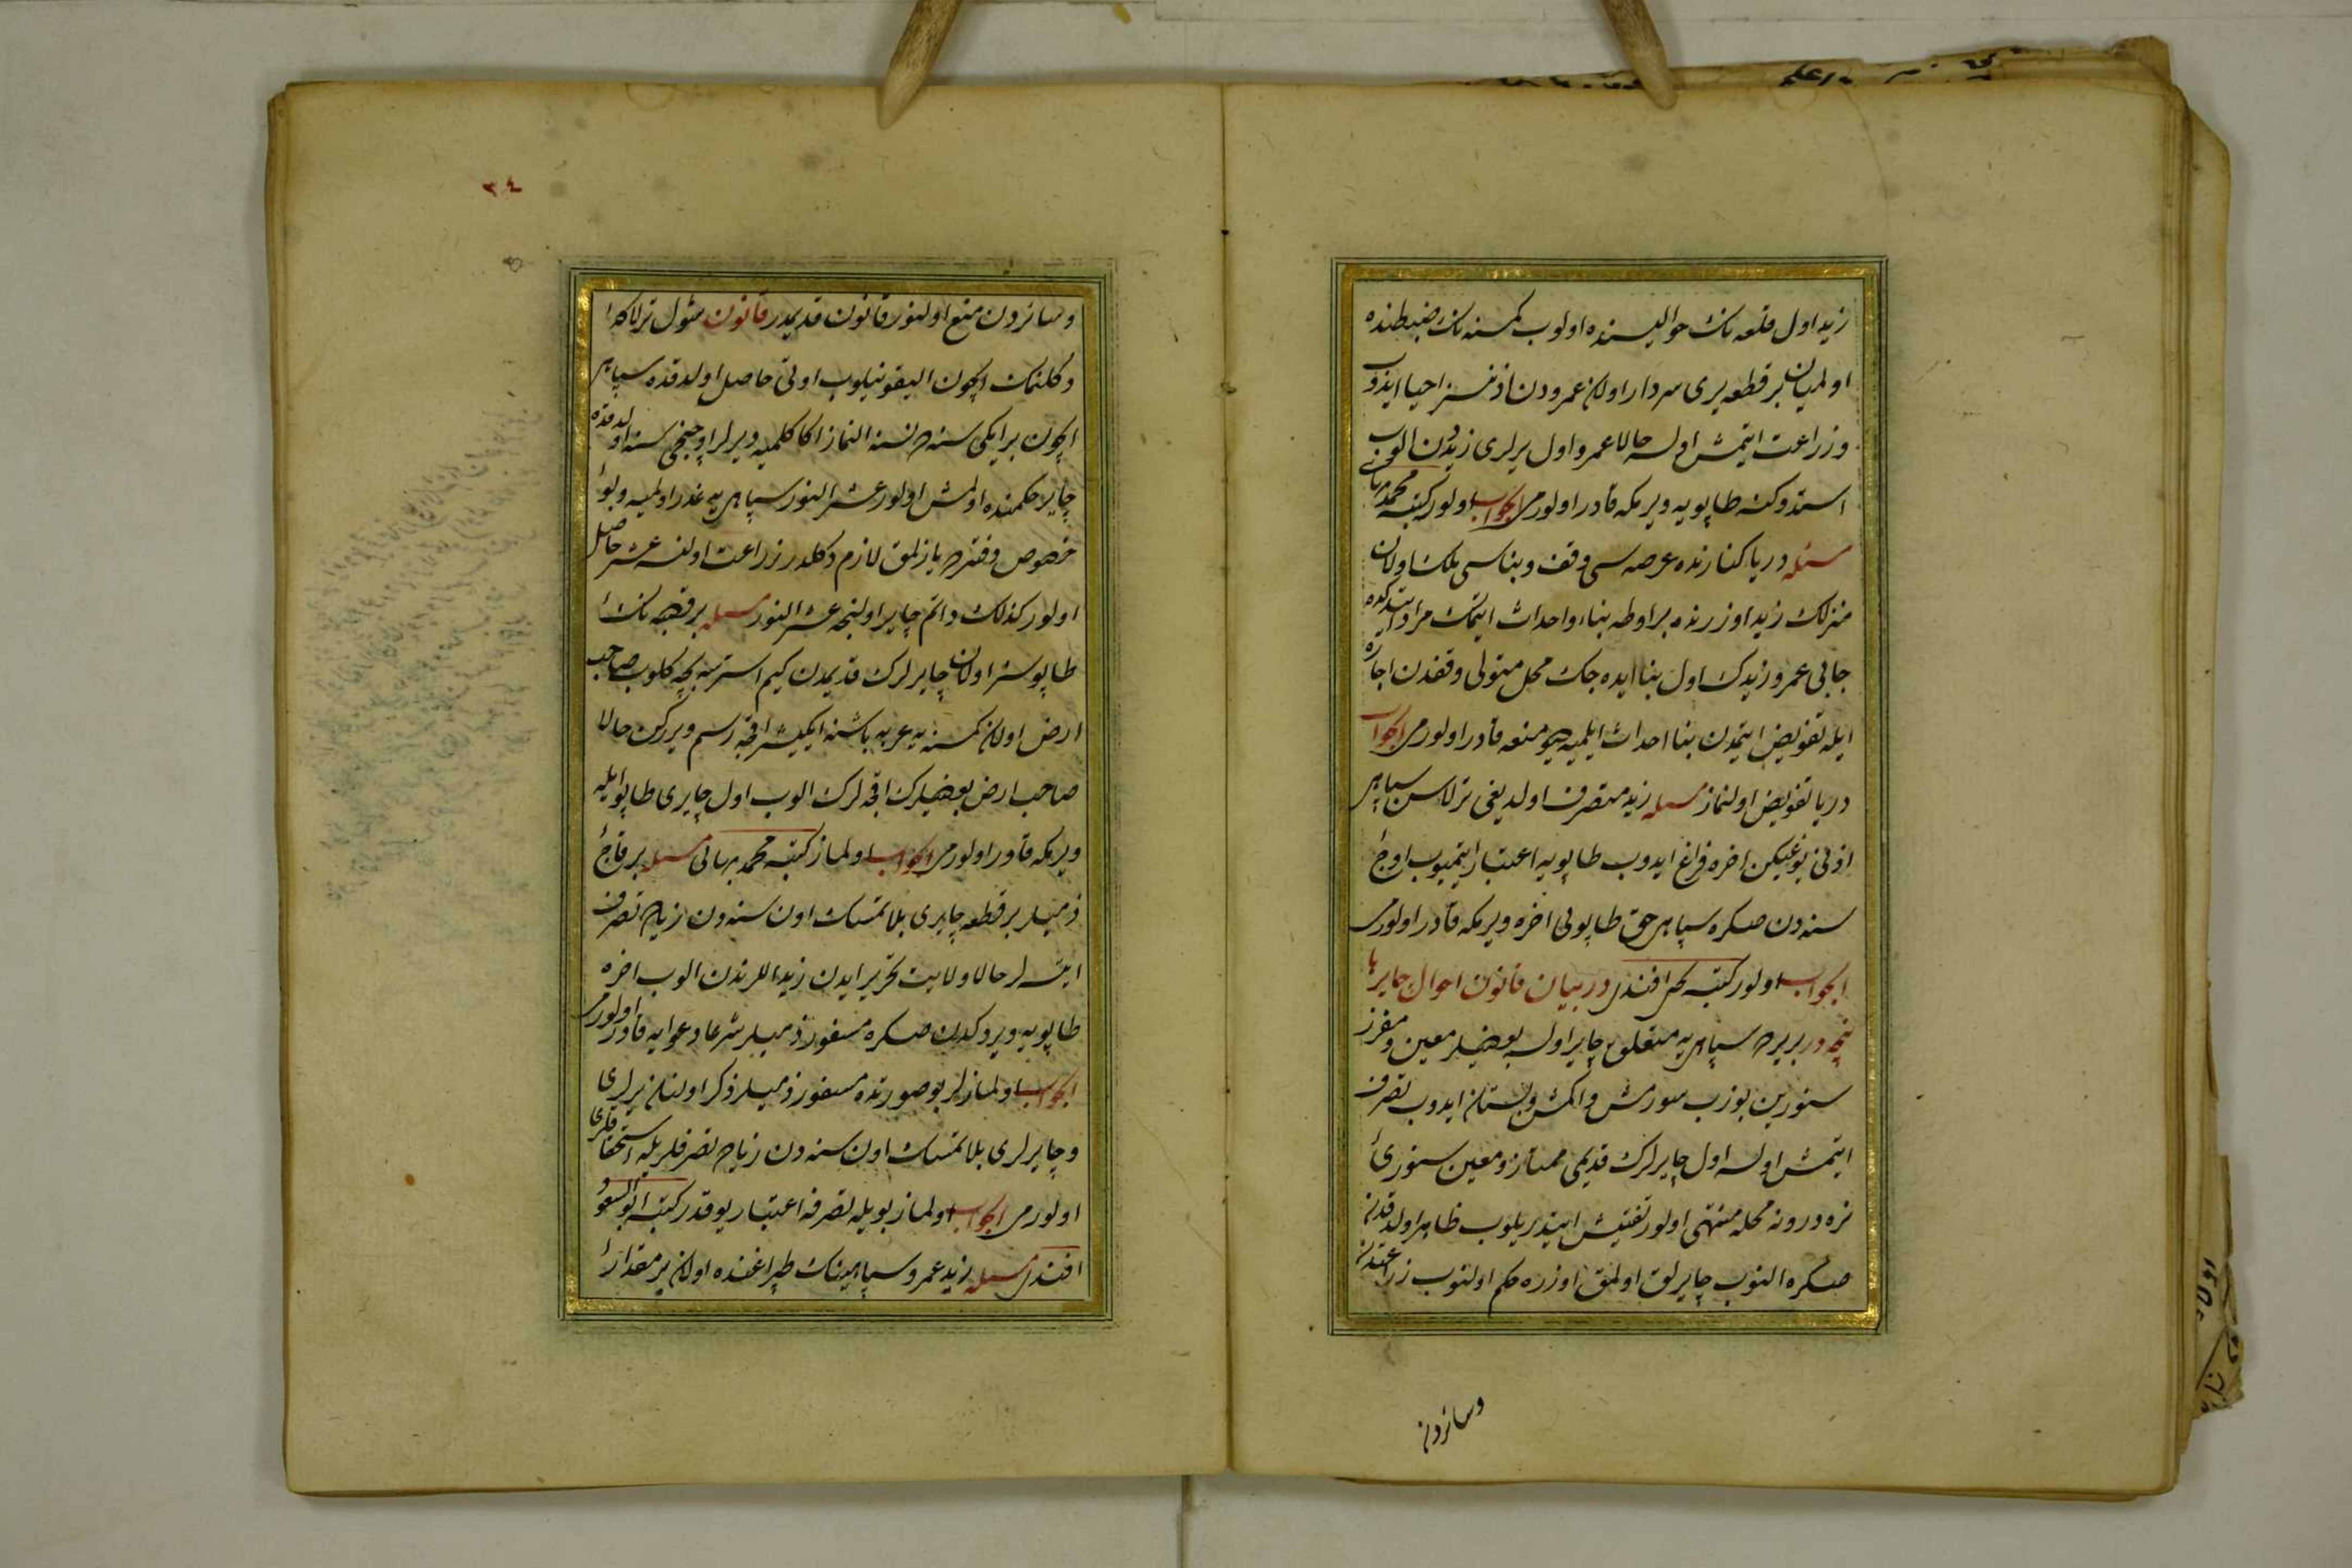 زید اول قلعه نك حوالیسنده اولوب كمسنه نك ضبطنده
اولمیان بر قطعه یری سردار اولان عمرودن اذنسز احیا ایدوب
وزراعت ایتمش اولسه حالا عمرو اول یرلری زیددن الوب
استدوكنه طاپویه ویرمكه قادر اولورمی الجواب اولور كتبه محمد بهائی
مسئله دریا كنارنده عرصه سی وقف وبناسی ملك اولان
منزلك زید اوزرنده بر اوطه بناء واحداث ایتمك مراد ایتدكده
جابی عمرو زیدك اول بنا ایده جك محل متولی وقفدن اجاره
ایله تفویض ایتمدن بنا احداث ایلمیه دیو منعه قادر اولورمی الجواب
دریا تفویض اولنماز مسئله زید متصرف اولدیغی ترلاسن سپاهی
اذنی یوغیكن اخره فراغ ایدوب طاپویه اعتبار ایتمیوب اوچ
سنه دن صكره سپاهی حق طاپولی اخره ویرمكه قادر اولورمی
الجواب اولور كتبه یحیی افندی در بیان قانون احوال چایرها
نیچه در بر یرده سپاهی یه متعلق چایر اولسه بعضیلر معین ومفرز
سنورین بوزب سورمش واكمش وبستان ایدوب تصرف
ایتمش اولسه اول چایرلرك قدیمی ممتاز ومعین سنوری
نره دروننه محله منتهی اولور تفتیش ایتدریلوب ظاهر اولدقدن
صكره النوب چایرلق اولمق اوزره حكم اولنوب زراعتدن
وسائردن
٣٤
وسائردن منع اولنور قانون قدیمدر قانون شول ترلاكه
دكلنمك ایچون الیقونیلوب اوتی حاصل اولدقده سپاهی
ایچون بر ایكی سنه ده نسنه النماز اكا كلمیه دیرلر اوچنجی سنه اولدقده
چایر حكمنده اولمش اولور عشر النور سپاهی یه غدر اولمیه وبو
خصوص دفترده یازلمق لازم دكلدر زراعت اولنسه عشر حاصل
اولور كذلك دائم چایر اولنجه عشر النور مسئله بر قصبه نك
طاپوسز اولان چایرلرك قدیمدن كیم استرسه بچه كلوب صاحب
ارض اولان كمسنه یه عربه باشنه ایكیشر اقچه رسم ویرركن حالا
صاحب ارض بعضیلرك اقچه لرك الوب اول چایری طاپو ایله
ویرمكه قادر اولورمی الجواب اولماز كتبه محمد بهائی مسئله بر قاچ
ذمیلر بر قطعه چایری بلا تمسك اون سنه دن زیاده تصرف
ایتسه لر حالا ولایت تحریر ایدن زید اللرندن الوب اخره
طاپویه ویردكدن صكره مسفور ذمیلر شرعا دعوایه قادر اولورمی
الجواب اولمازلر بو صورتده مسفور ذمیلر ذكر اولنان یرلری
وچایرلری بلا تمسك اون سنه دن زیاده تصرفلریله استحقاقلری
اولورمی الجواب اولماز بویله تصرفه اعتبار یوقدر كتبه ابو السعود
افندی مسئله زید عمرو سپاهینك طپراغنده اولان بر مقدار